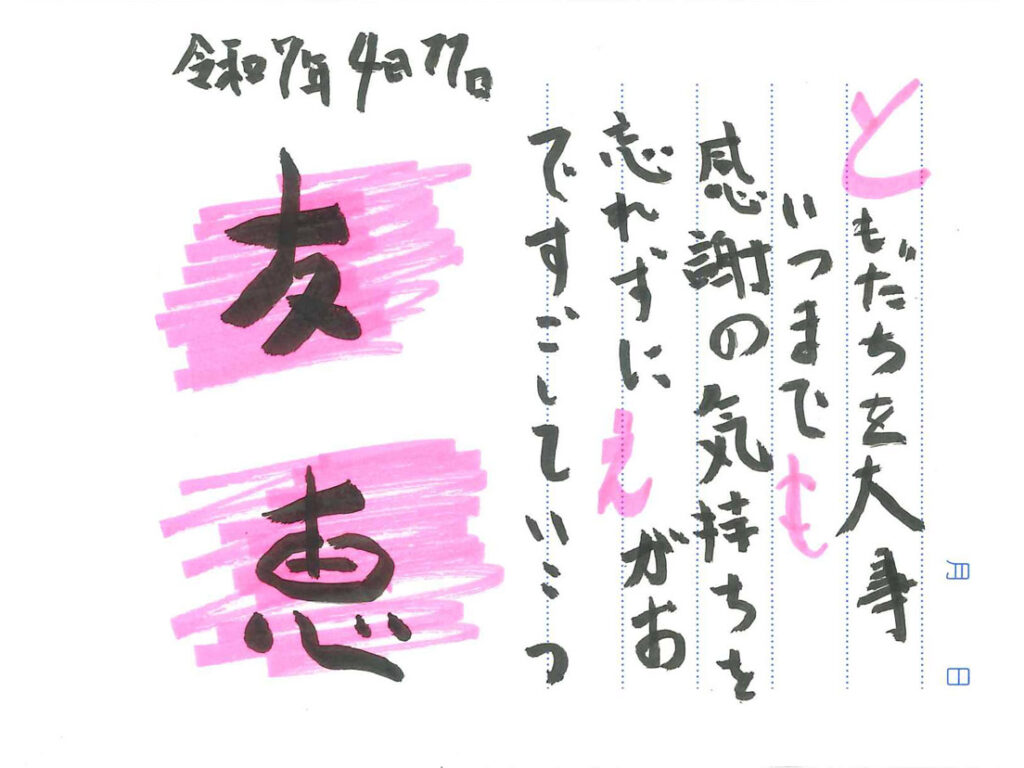 月 日
ともだちを大事
いつまでも
感謝の気持ちを
忘れずにえがお
ですごしていこう
令和7年4月11日
友恵